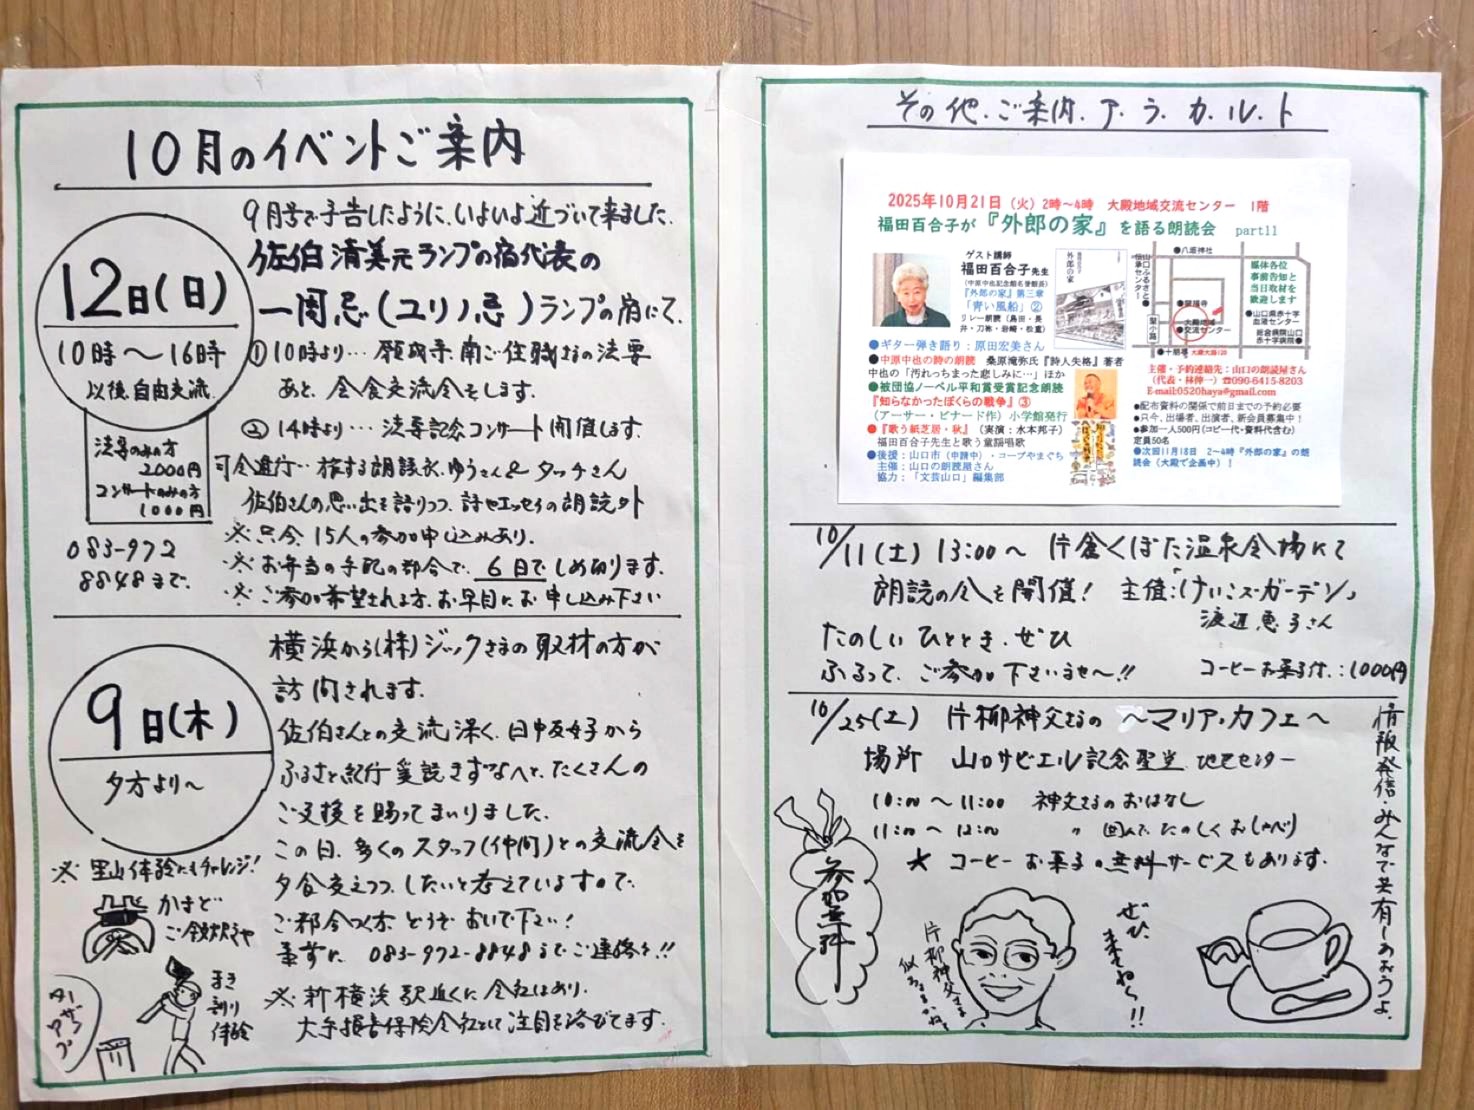 10月のイベントご案内
12日(日)
10時～16時
以後、自由交流
法要のみの方
2000円
コンサートのみの方
1000円
083-972
8848まで
9月号で予告したように、いよいよ近づいて来ました。
佐伯清美元ランプの宿代表の
一周忌(ユリノ忌)ランプの宿にて。
①10時より…願成寺、南ご住職さまの法要
あと、会食交流会をします。
②14時より…法要記念コンサート開催します。
司会進行…旅する朗読家、ゆうさん& タッチさん
佐伯さんの思い出を語りつつ、詩やエッセイの朗読外
※只今、15人の参加申し込みあり。
※お弁当の手配の都合で、6日でしめ切ります。
※ご参加希望される方、お早目にお申し込み下さい
9日(木)
夕方より～
横浜から(株)ジックさまの取材の方が
訪問されます。
佐伯さんとの交流深く、日中友好子から
ふるさと紀行 きずなへと、たくさんの
ご支援を賜ってまいりました。
この日、多くのスタッフ(仲間)との交流会を
夕食交えつつ、したいと考えていますので、
ご都合つく方、どうぞおいで下さい!
事前に 083-972-8848までご連絡を!!
※新横浜駅近くに会社はあり、
大手損害保険会社として注目を浴びてます。
※里山体験にもチャレンジ!
かまど
ご飯炊きや
まき
割り
体験
その他、ご案内、ア、ラ、カ、ル、ト
2025年10月21日（火）2時～4時 大殿地域交流センター 1階
福田百合子が『外郎の家』を語る朗読会 part11
ゲスト講師
福田百合子先生
（中原中也記念館名誉館長）
『外郎の家』第三章
「青い風船」②
リレー朗読（島田・長
井・刀祢・岩崎・松重）
●ギター弾き語り：原田宏美さん
●中原中也の詩の朗読 桑原滝弥氏『詩人失格』著者
中也の「汚れっちまった悲しみに…」ほか
●被団協ノーベル平和賞受賞記念朗読
『知らなかったぼくらの戦争』③
（アーサー・ビナード作）小学館発行
●『歌う紙芝居・秋』（実演：水本邦子）
福田百合子先生と歌う童謡唱歌
●後援：山口市（申請中）・コープやまぐち
主催：山口の朗読屋さん
協力：「文芸山口」編集部
外郎の家
●八坂神社
山口ふるさと
伝承センター
●龍福寺
大殿地域
●交流センター
竪小路
●十朋亭
媒体各位
事前告知と
当日取材を
歓迎します
●山口県赤十字
血液センター
総合病院山口
赤十字病院●
主催・予約連絡先：山口の朗読屋さん
（代表・林伸一）☎090-6415-8203
E-mail:0520haya@gmail.com
●配布資料の関係で前日までの予約必要
●只今、出場者、出演者、新会員募集中！
●参加一人500円（コピー代・資料代含む）
定員50名
●次回11月18日 2～4時『外郎の家』の朗
読会（大殿で企画中）！
10/11(土) 13:00～ 片倉くぼた温泉会場にて
朗読の会を開催! 主催:「けいこズ・ガーデン」
渡辺恵子さん
たのしいひととき、ぜひ
ふるって、ご参加下さいませ～!!
コーヒーお菓子付.:1000円
10/25(土) 片柳神父さまの ～マリア・カフェ～
場所 山口サビエル記念聖堂 地下センター
10:00～11:00 神父さまのおはなし
11:00～12:00 〃 囲んで、たのしくおしゃべり
★コーヒーお菓子の無料サービスもあります。
参加無料
片柳神父さま
似てるかね
ぜひ、
来てねー!!
情報発信・みんなで共有しあおうよ。